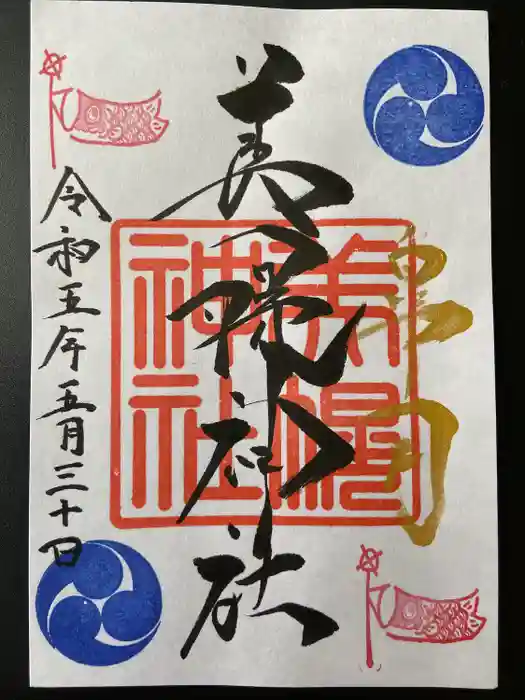 皐月
美幌神社
美幌
神社
令和五年五月三十日